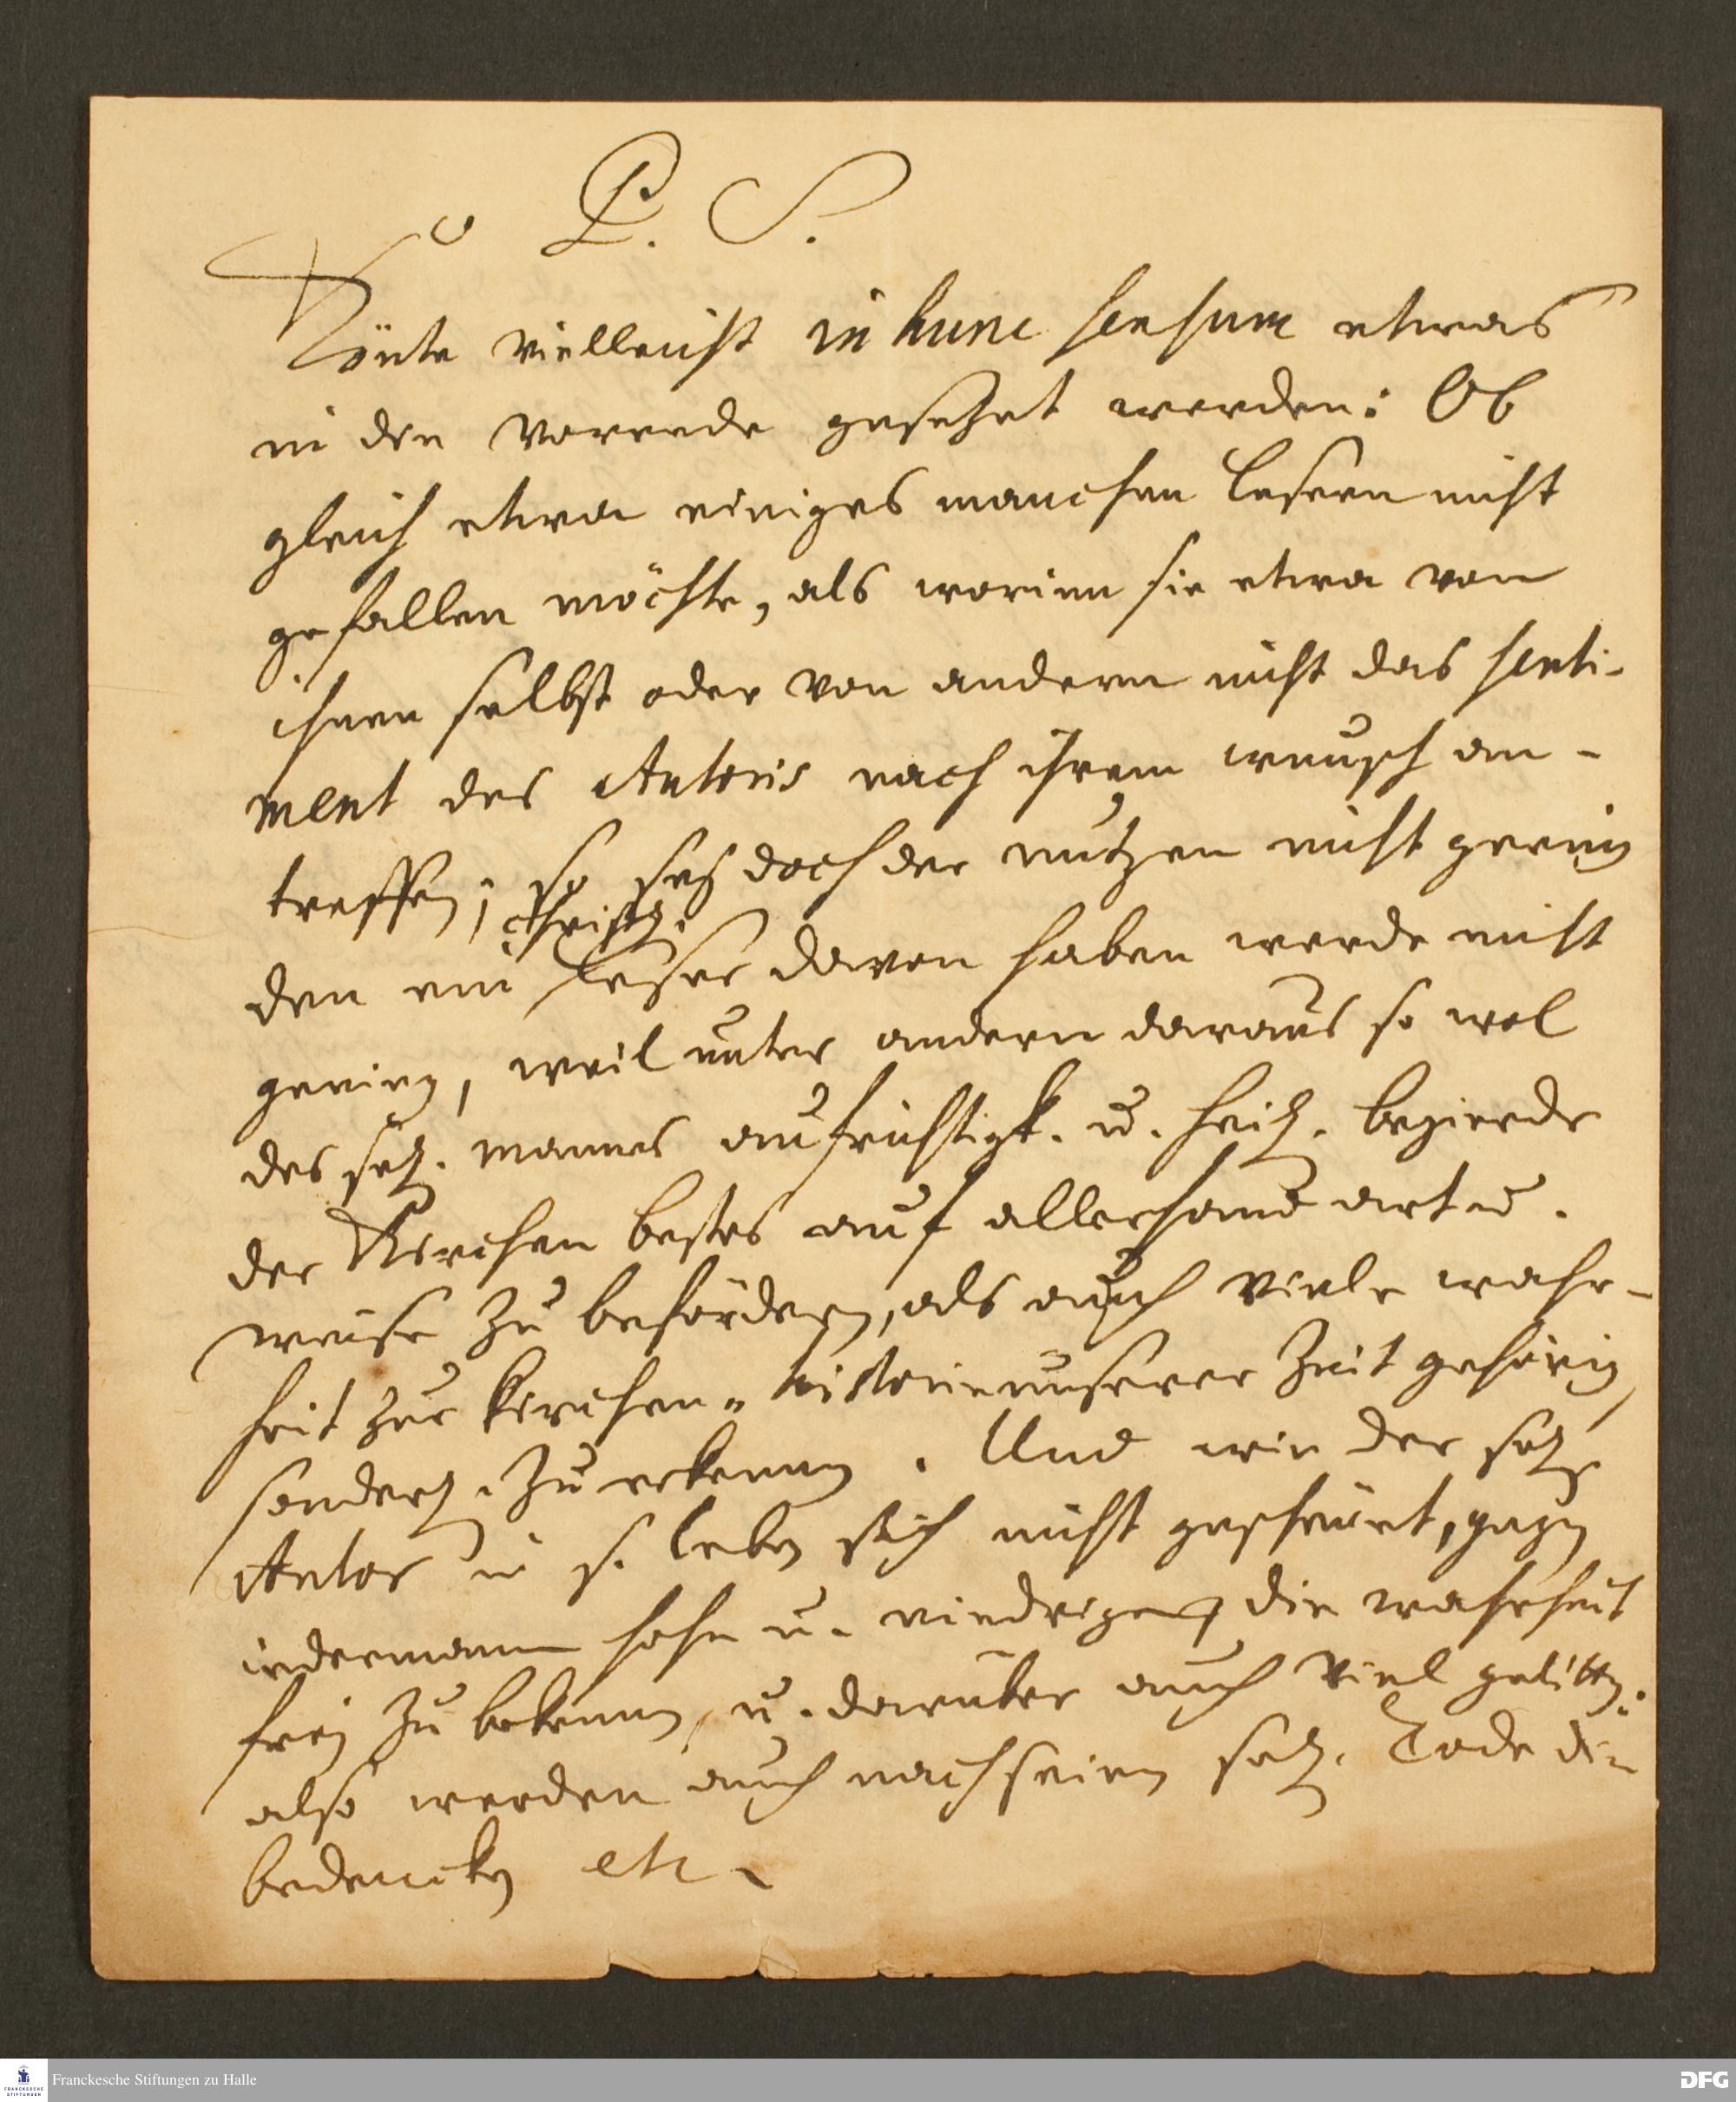 P. S.
Könte vielleicht in hunc sensum etwas
in der Vorrede gesetzet werden: Ob
gleich etwa einiges manchen Lesern nicht
gefallen möchte, als worinn sie etwa von
ihnen selbst oder von andern nicht das senti-
ment des Autoris nach ihrem wunsch an-
treffen; so sey doch der nutzen nicht gering
den ein christl. Leser davon haben werde nicht
gering, weil unter andern daraus so wol
des sel. Mannes aufrichtigk. u. heil. begierde
der Kirchen bestes auf allerhand art u.
weise zu befördern, als auch viele wahr-
heit zur Kirchen-historie unserer Zeit gehörig,
sonderl. zu erkennen. Und wie der sel.
Autor in s. Leben sich nicht gescheuet, gegen
iederman hohe u. niedrigen die wahrheit
frey zu bekennen, u. darüber auch viel gelitten:
also werden auch nach seinem sel. Tode die
bedencken etc.
Franckesche Stiftungen zu Halle
FRANCKESCHE
STIFTUNGEN
DFG